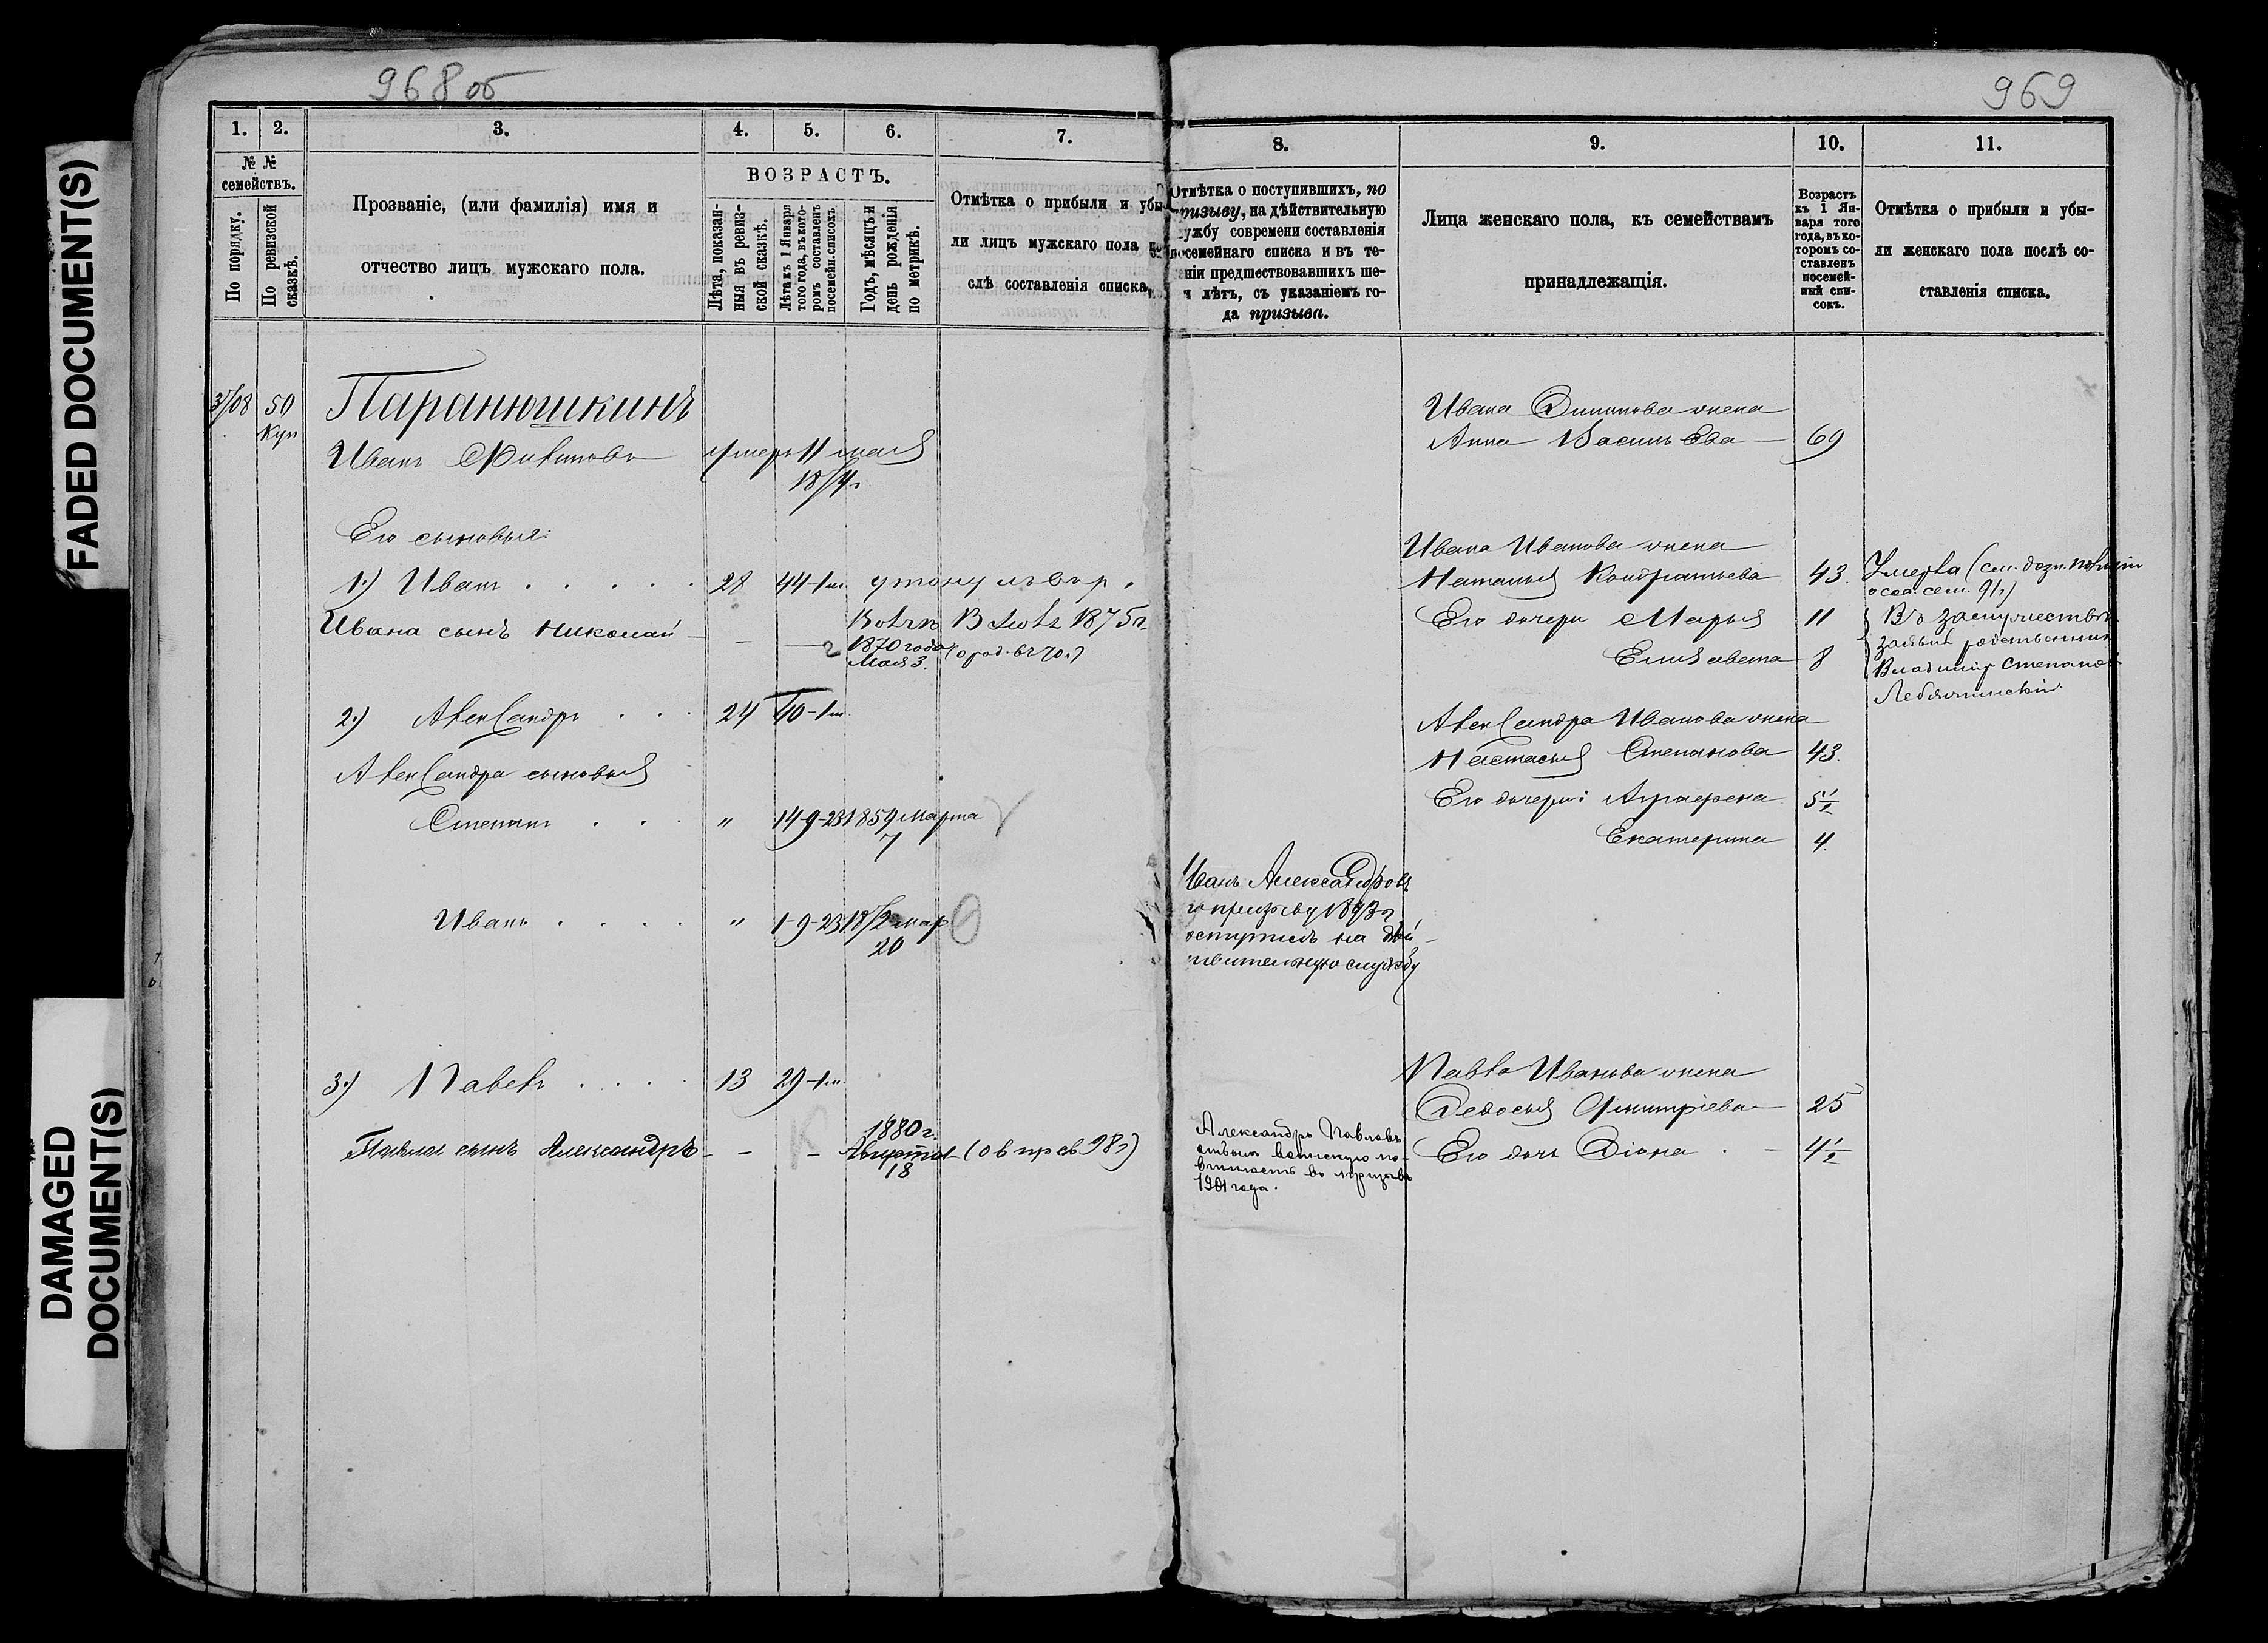 FADED DOCUMENT(S)
DAMAGED
DOCUMENT(S)
968 об
1.
2.
3.
4.
5.
6.
7.
№ №
семействъ.
По порядку.
По ревизской
сказкѣ.
Прозваніе, (или фамилія) имя и
отчество лицъ мужскаго пола.
ВОЗРАСТЪ.
Лѣта, показан-
ныя въ ревиз-
ской сказкѣ.
Лѣта къ 1 Января
того года, въ кото-
ромъ составленъ
посемейн. списокъ
Годъ, мѣсяцъ и
день рожденія
по метрикѣ.
Отмѣтка о прибыли и убы-
ли лицъ мужскаго пола по-
слѣ составленія списка.
50
Куп
Паранюшкинъ
Иванъ
умеръ 11 мая
Его сыновья:
1.) Иванъ 28 44-1м. утонулъ въ р.
Волгѣ В Іюлѣ 1875 г.
Ивана сынъ Николай — — 1870 года
Мая 3. (о род. въ 70 г.)
2.) Александръ 24 40-1м
Александра сыновья
Степанъ " 14-9-23 1859 Марта
7
Иванъ " 1-9-23 мар
20
3.) Павелъ 13 29-1м.
Павла сынъ Александръ — — — 1880 г.
Августа
18
969
8.
9.
10.
11.
Отмѣтка о поступившихъ, по
призыву, на дѣйствительную
ужбу современи составленія
посемейнаго списка и въ те-
ніи предшествовавшихъ ше-
и лѣтъ, съ указаніемъ го-
да призыва.
Лица женскаго пола, къ семействамъ
принадлежащія.
Возрастъ
къ 1 Ян-
варя того
года, въ ко-
торомъ со-
ставленъ
посемей-
ный спи-
сокъ.
Отмѣтка о прибыли и убы-
ли женскаго пола послѣ со-
ставленія списка.
Ивана жена
Анна Васильева — 69
Ивана Иванова жена
Наталья Кондратьева 43. Умерла
Его дочери Марья 11 Въ замужествѣ
Елизавета 8
Владиміръ Степанов
Александра Иванова жена
Настасья Степанова 43.
Его дочери: Аграфена 5½
Екатерина 4.
Иванъ Александровъ
призыву 1893 г
оступилъ на дѣй-
ствительную службу
Павла Иванова жена
Федосья Дмитріева 25
Его дочь Діона 4½
Александръ Павловъ
отбылъ воинскую по-
винность въ призывъ
1901 года.